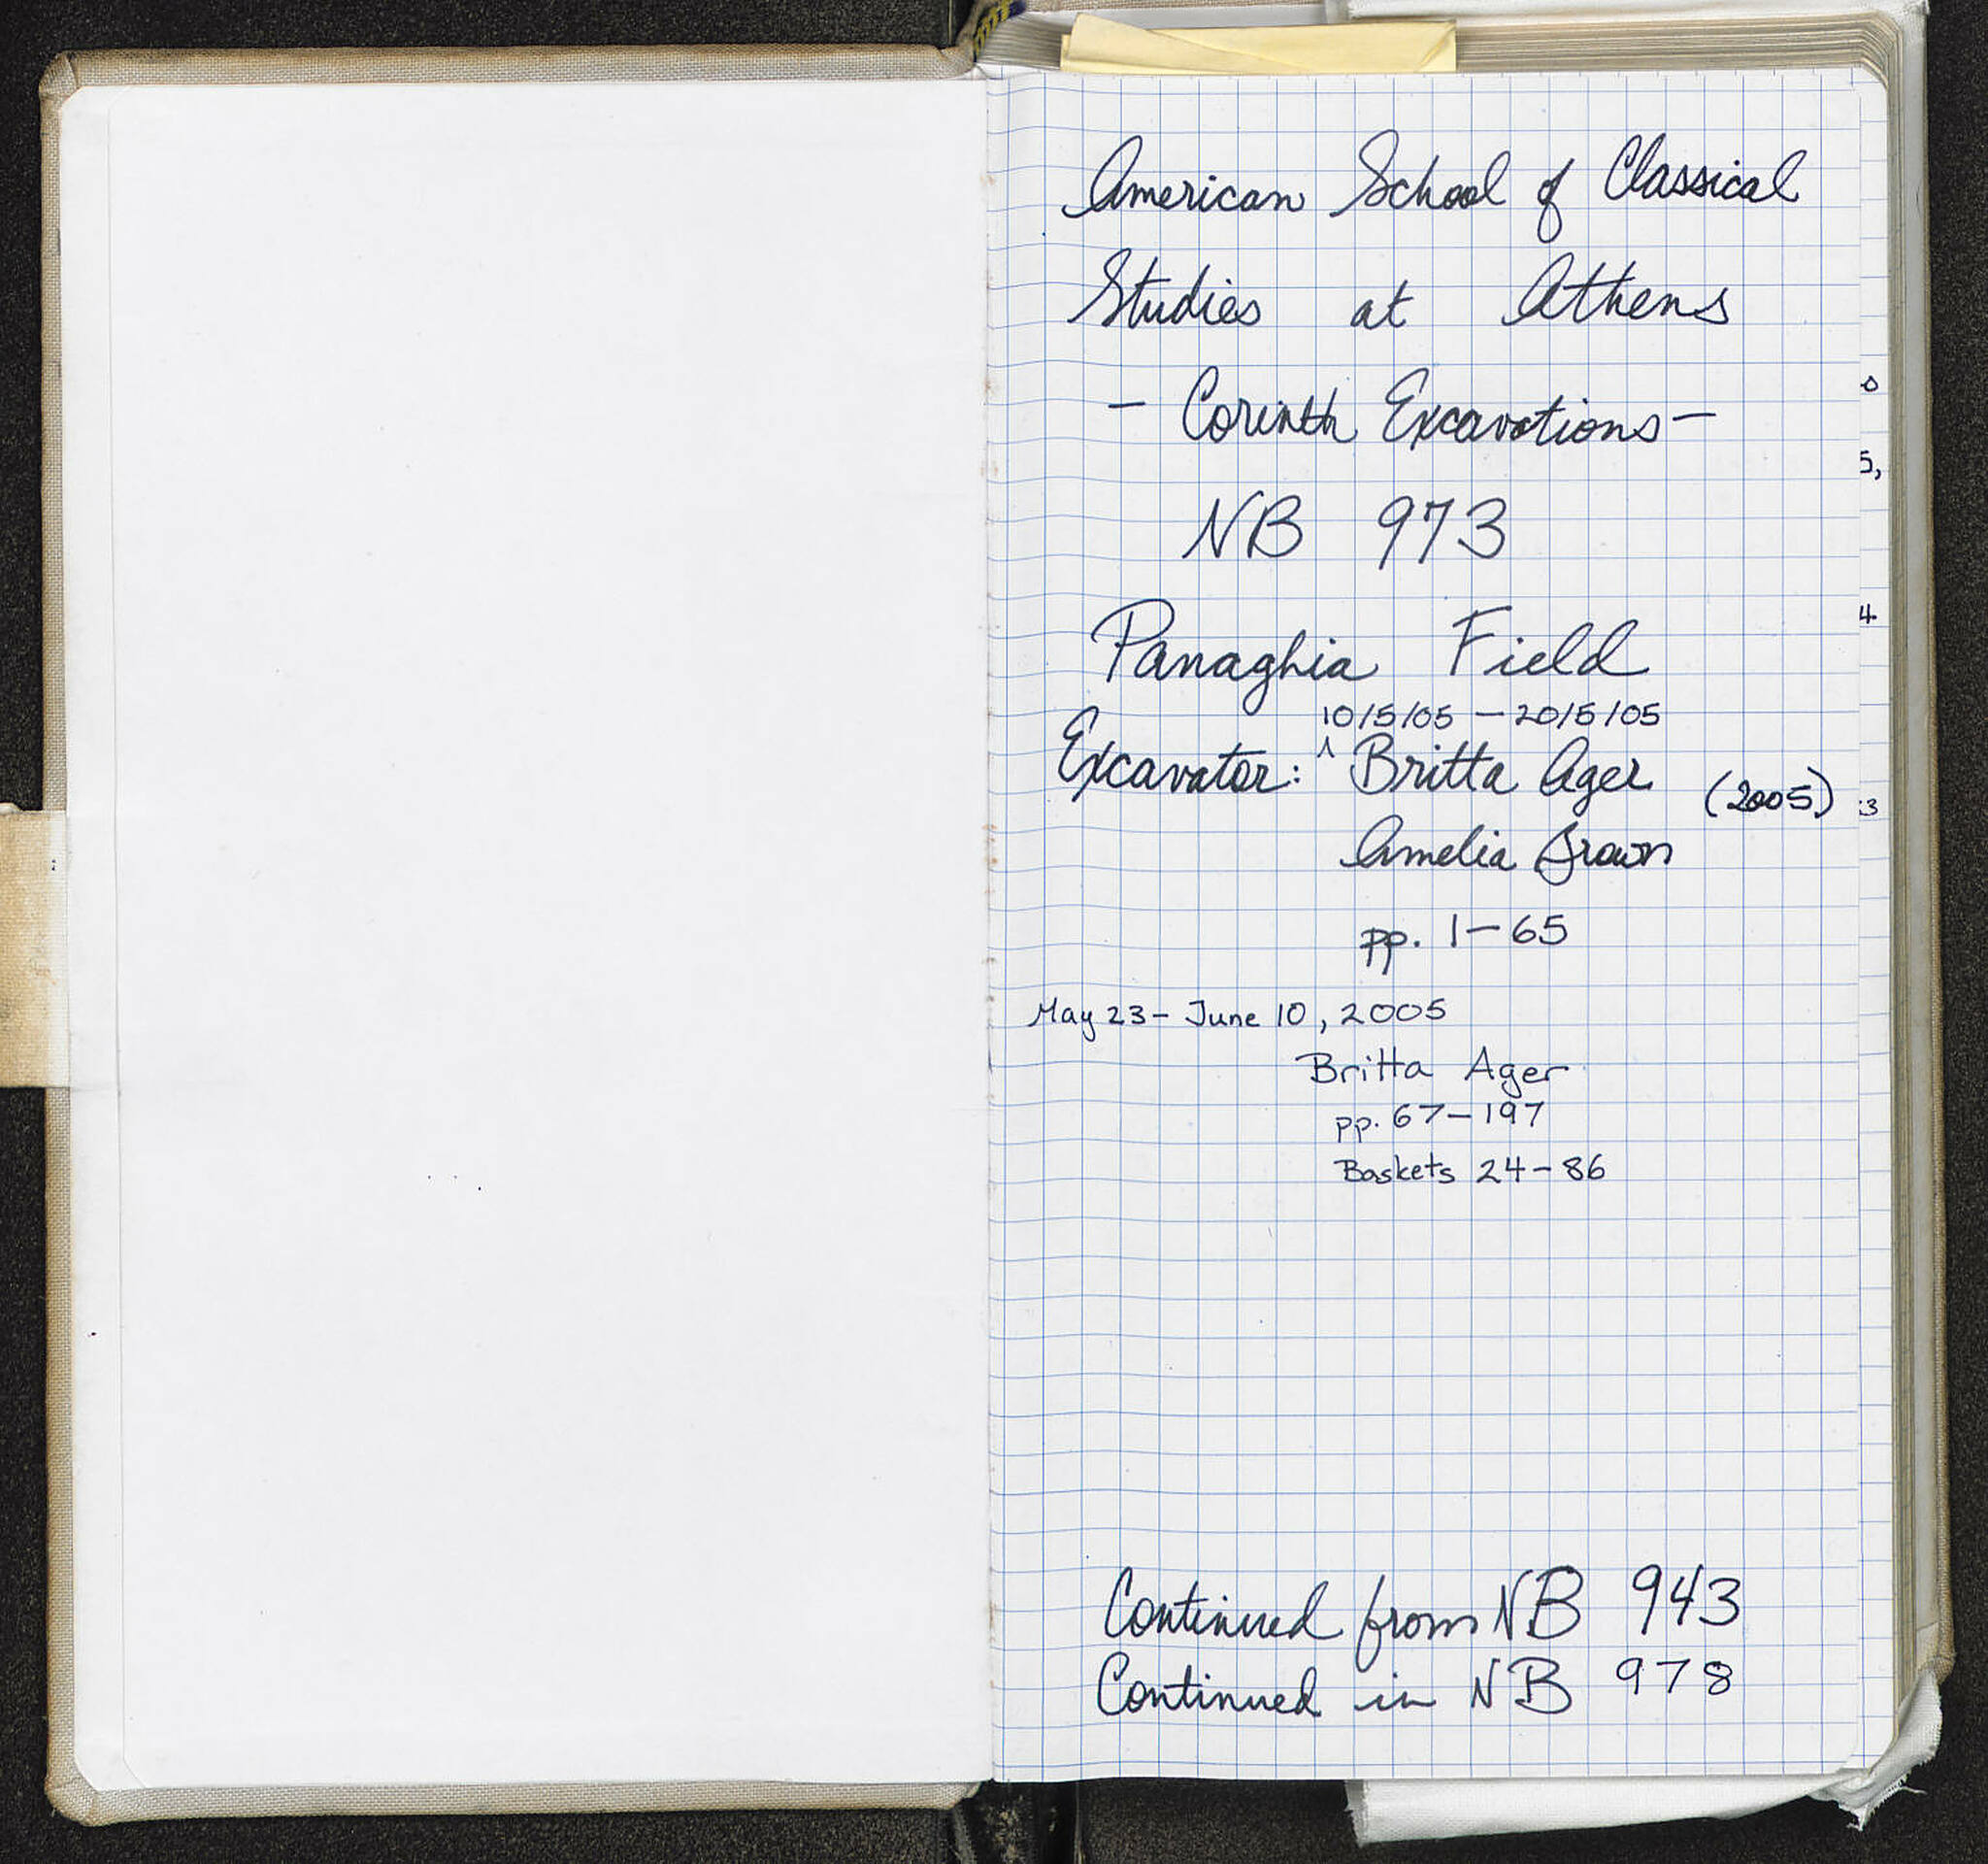 American School of Classical
Studies at Athens
- Corinth Excavations -
NB 973
Panaghia Field
10/5/05 - 20/5/05
Excavator: ^ Britta Ager (2005)
Amelia Brown
pp. 1-65
May 23 - June 10, 2005
Britta Ager
pp. 67-197
Baskets 24-86
Continued from NB 943
Continued in NB 978